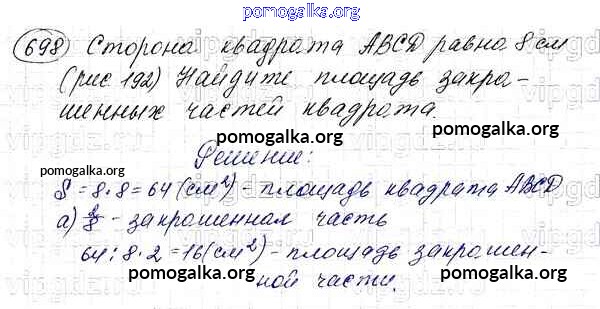 pomogalka.org
698 Сторона квадрата ABCD равна 8 см
(рис 192) Найдите площадь закра-
шенных частей квадрата.
pomogalka.org pomogalka.org
Решение:
S = 8·8 = 64 (см²) - площадь квадрата ABCD
а) 2/8 - закрашенная часть
64 : 8 · 2 = 16 (см²) - площадь закрашен-
ной части.
pomogalka.org pomogalka.org